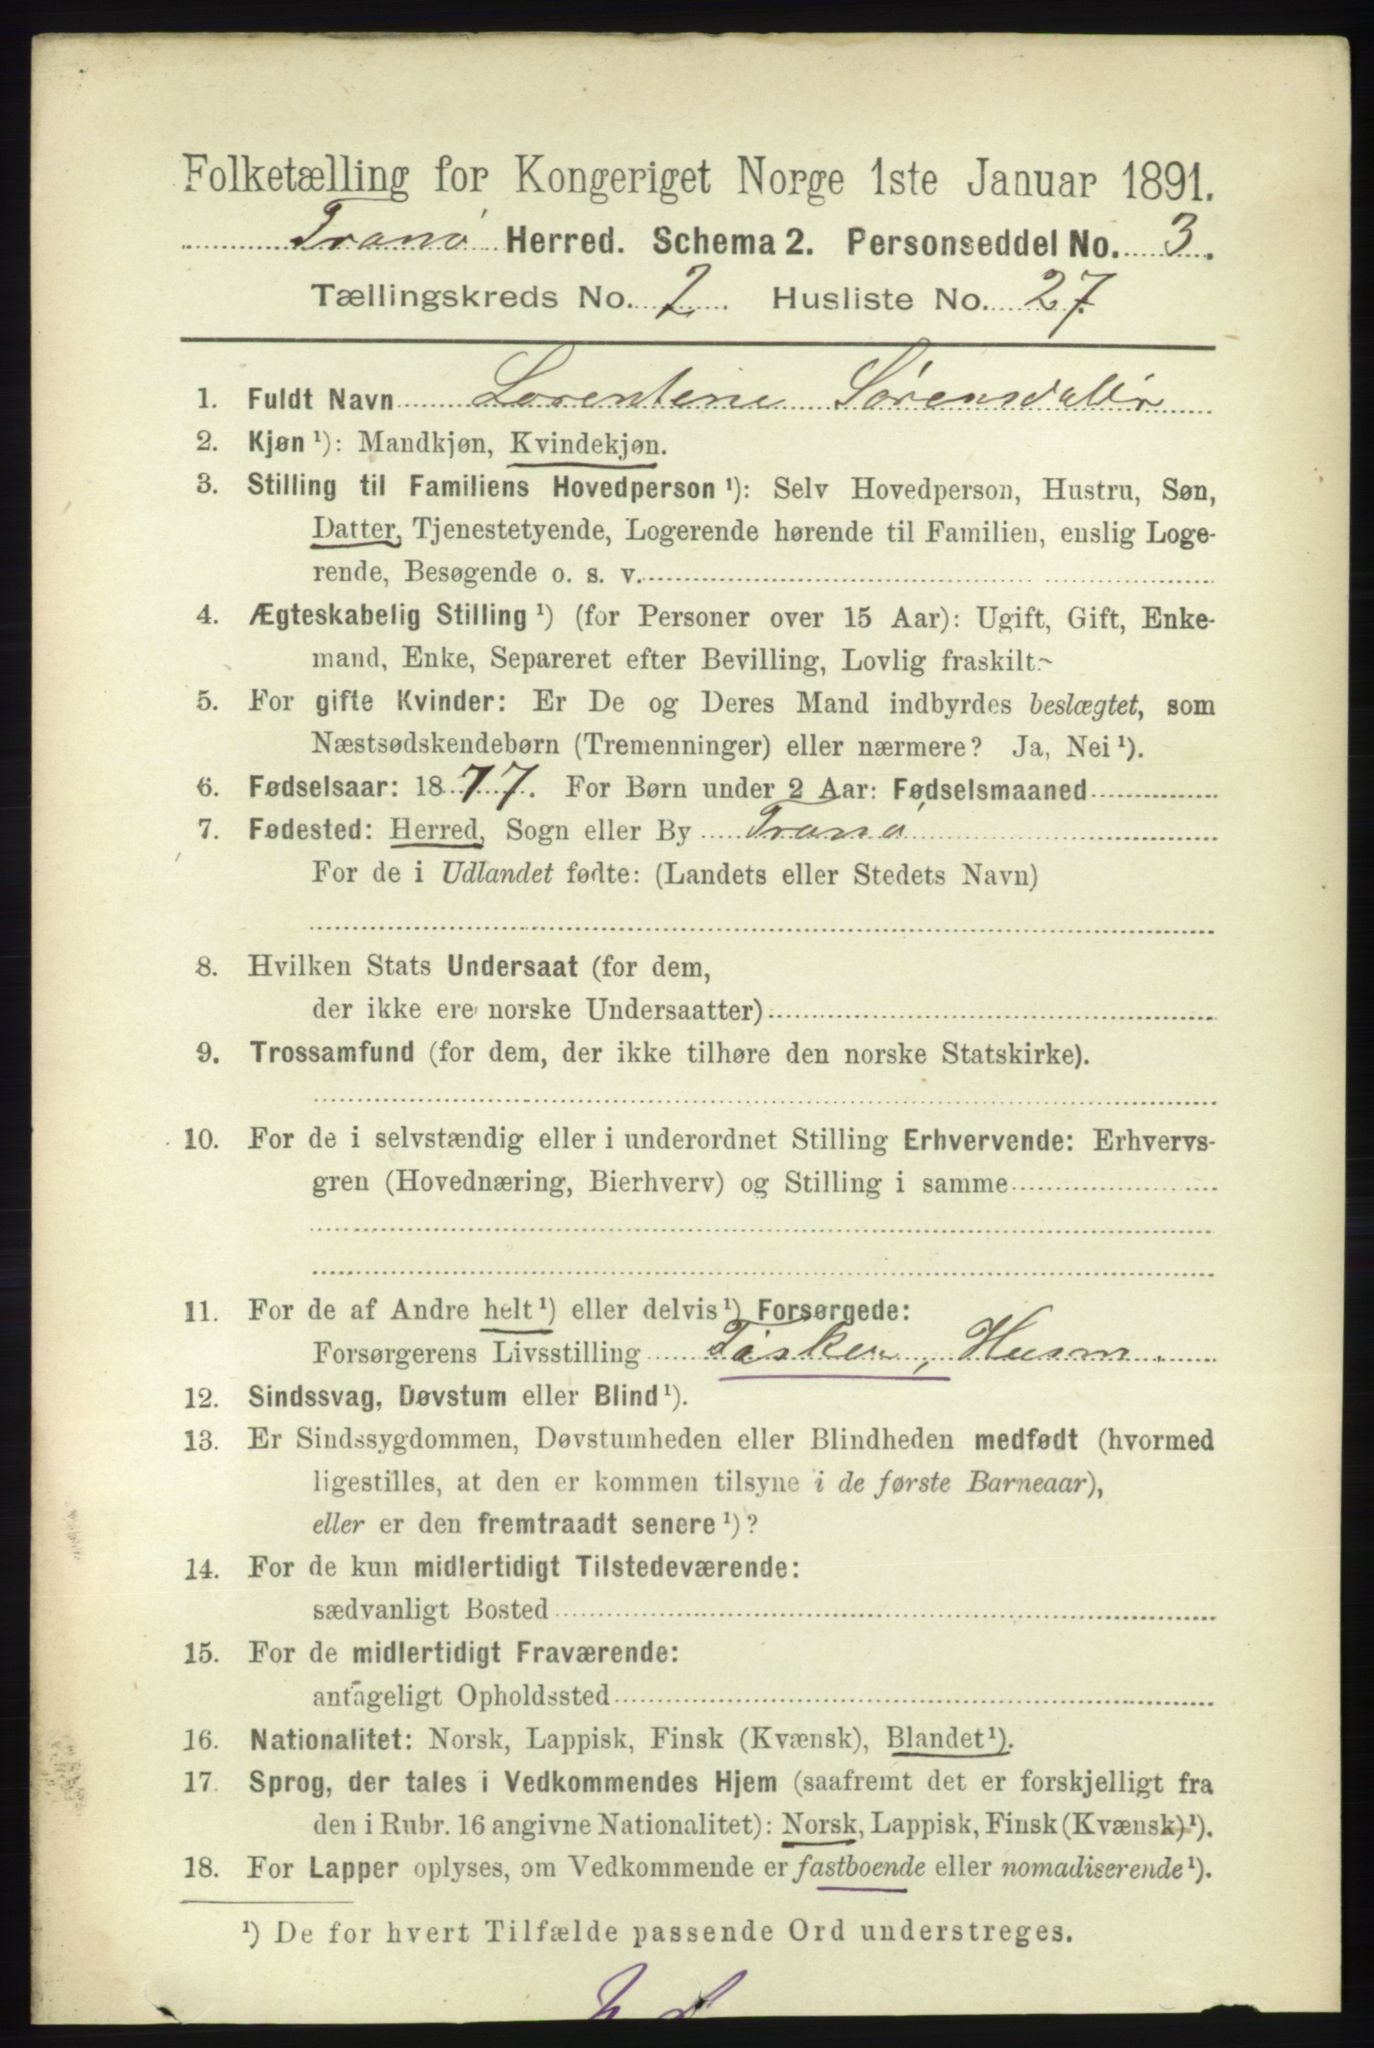 Folketælling for Kongeriget Norge 1ste Januar 1891.
Tranø Herred. Schema 2. Personseddel No. 3.
Tællingskreds No. 2. Husliste No. 27
1. Fuldt Navn Lorentine Sørensdatter
2. Kjøn ¹): Mandkjøn, Kvindekjøn.
3. Stilling til Familiens Hovedperson ¹): Selv Hovedperson, Hustru, Søn,
Datter, Tjenestetyende, Logerende hørende til Familien, enslig Loge-
rende, Besøgende o. s. v.
4. Ægteskabelig Stilling ¹) (for Personer over 15 Aar): Ugift, Gift, Enke-
mand, Enke, Separeret efter Bevilling, Lovlig fraskilt.
5. For gifte Kvinder: Er De og Deres Mand indbyrdes beslægtet, som
Næstsødskendebørn (Tremenninger) eller nærmere? Ja, Nei ¹).
6. Fødselsaar: 1877. For Børn under 2 Aar: Fødselsmaaned
7. Fødested: Herred, Sogn eller By Tranø
For de i Udlandet fødte: (Landets eller Stedets Navn)
8. Hvilken Stats Undersaat (for dem,
der ikke ere norske Undersaatter)
9. Trossamfund (for dem, der ikke tilhøre den norske Statskirke).
10. For de i selvstændig eller i underordnet Stilling Erhvervende: Erhvervs-
gren (Hovednæring, Bierhverv) og Stilling i samme
11. For de af Andre helt ¹) eller delvis ¹) Forsørgede:
Forsørgerens Livsstilling Fisker, Husm.
12. Sindssvag, Døvstum eller Blind ¹).
13. Er Sindssygdommen, Døvstumheden eller Blindheden medfødt (hvormed
ligestilles, at den er kommen tilsyne i de første Barneaar),
eller er den fremtraadt senere ¹)?
14. For de kun midlertidigt Tilstedeværende:
sædvanligt Bosted
15. For de midlertidigt Fraværende:
antageligt Opholdssted
16. Nationalitet: Norsk, Lappisk, Finsk (Kvænsk), Blandet ¹).
17. Sprog, der tales i Vedkommendes Hjem (saafremt det er forskjelligt fra
den i Rubr. 16 angivne Nationalitet): Norsk, Lappisk, Finsk (Kvænsk) ¹).
18. For Lapper oplyses, om Vedkommende er fastboende eller nomadiserende ¹).
¹) De for hvert Tilfælde passende Ord understreges.